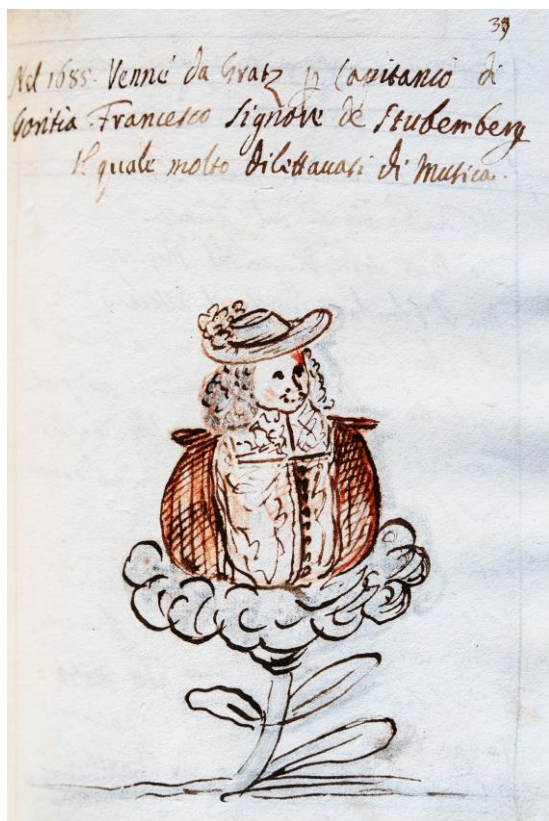 39
Nel 1685. Venne da Gratz p Capitanio di
Goritia Francesco Signore de Stubemberg
Il quale molto dilettauasi di Musica.